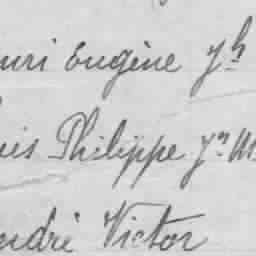 uri Eugène Jh
uis Philippe Jn M
ndré Victor